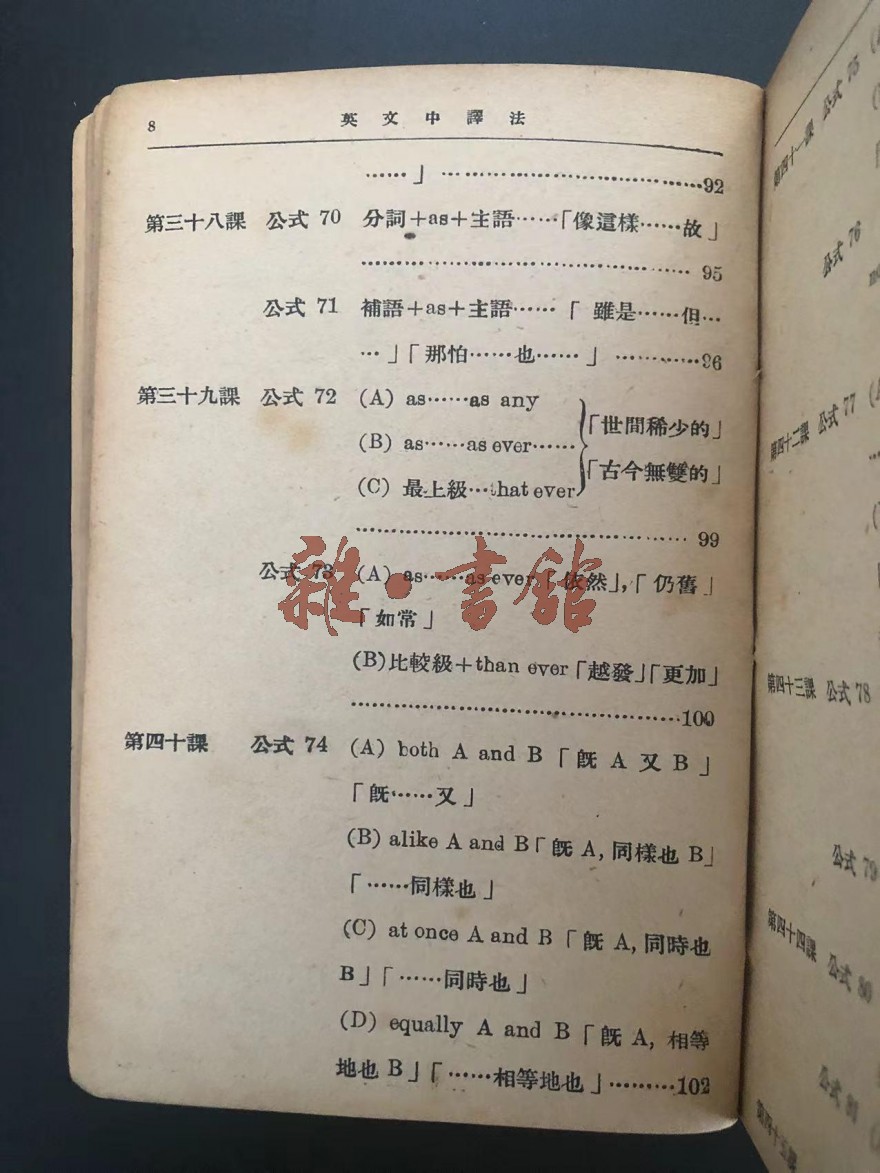 8 英文中譯法
……」……………………………92
第三十八課 公式 70 分詞+as+主語……「像這樣……故」
…………………………………… 95
公式 71 補語+as+主語……「雖是……但…
…」「那怕……也……」…………96
第三十九課 公式 72 (A) as……as any
(B) as……as ever……
(C) 最上級…that ever
「世間稀少的」
「古今無雙的」
…………………………………… 99
公式 73 (A) as……as ever「依然」,「仍舊」
「如常」
雜·書館
(B)比較級+than ever「越發」「更加」
……………………………………100
第四十課 公式 74 (A) both A and B「既 A 又 B」
「既……又」
(B) alike A and B「既 A, 同樣也 B」
「……同樣也」
(C) at once A and B「既 A, 同時也
B」「……同時也」
(D) equally A and B「既 A, 相等
地也 B」「……相等地也」………102
第四十一課 公式 75
公式 76
第四十二課 公式 77
第四十三課 公式 78
公式 79
第四十四課 公式 80
公式
第四十五課